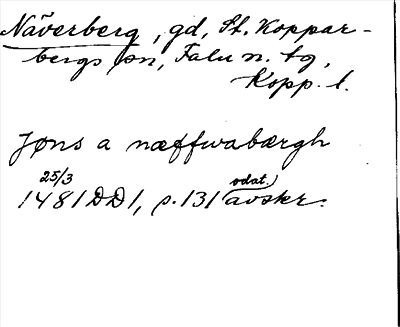 Näverberg, gd, St. Koppar-
bergs sn, Falu n. tg,
Kopp. l.
Jøns a næffwabærgh
25/3
1481 DD1, s. 131 avskr.
odat.